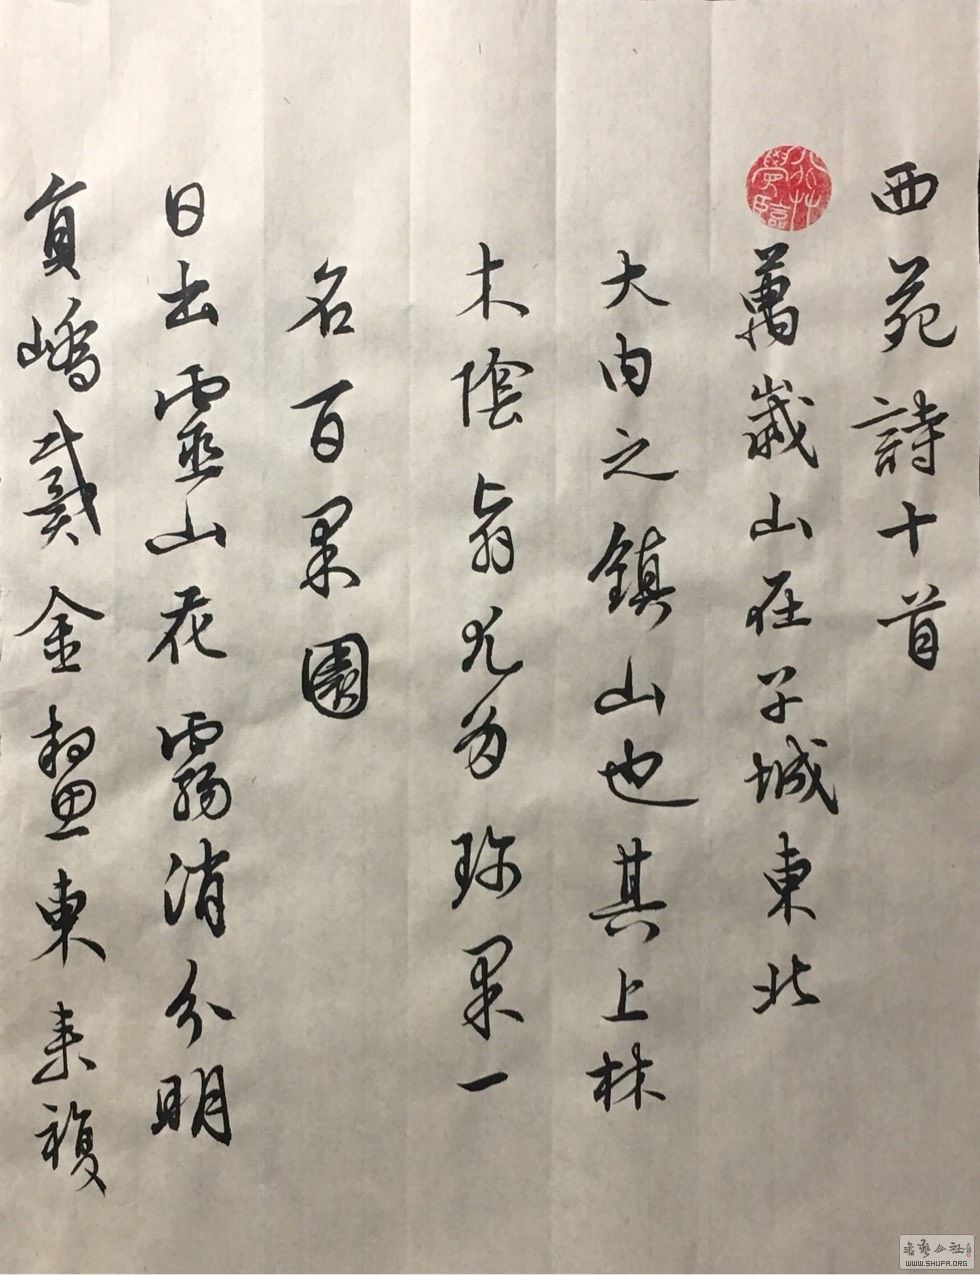 西苑詩十首
萬歲山在子城東北
大内之鎮山也其上林
木陰翳尤多珍果一
名百果園
日出靈山花霧消分明
員嶠戴金鼇東來複
WWW.SHUFA.ORG